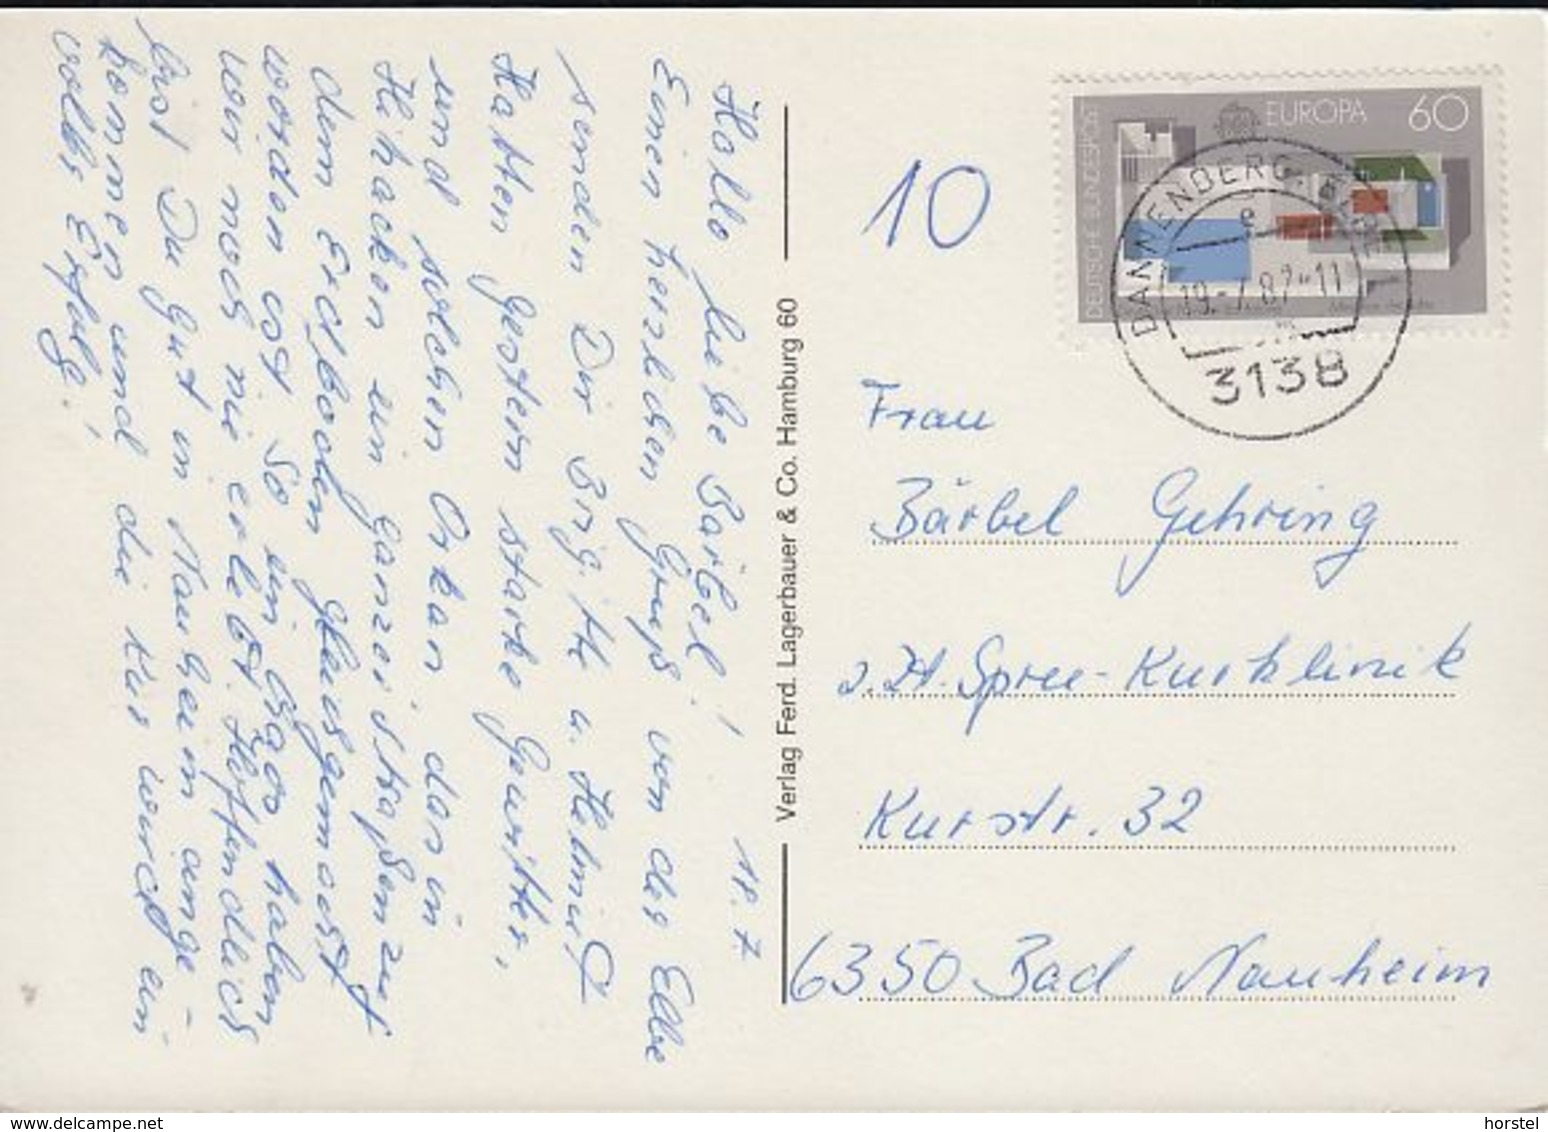 18. 7.
Hallo liebe Bärbel!
Einen herzlichen Gruß von der Elbe
senden Dir Brigitte u. Helmut
Hatten gestern starke Gewitter,
und solchen Orkan, das in
Hitzacker ein ganzer
dem Erdboden gleichgemacht
worden ist. So ein haben
wir noch nie erlebt. Hoffendlich
bist Du gut in Nauheim ange-
kommen und die Kur wird ein
voller Erfolg!
Verlag Ferd. Lagerbauer & Co. Hamburg 60
DEUTSCHE BUNDESPOST
EUROPA 60
DANNENBERG
e
19.-7.87-11
3138
10
Frau
Bärbel Gehring
z.Zt. Spree-Kurklinik
Kurstr. 32
6350 Bad Nauheim
horstel
www.delcampe.net